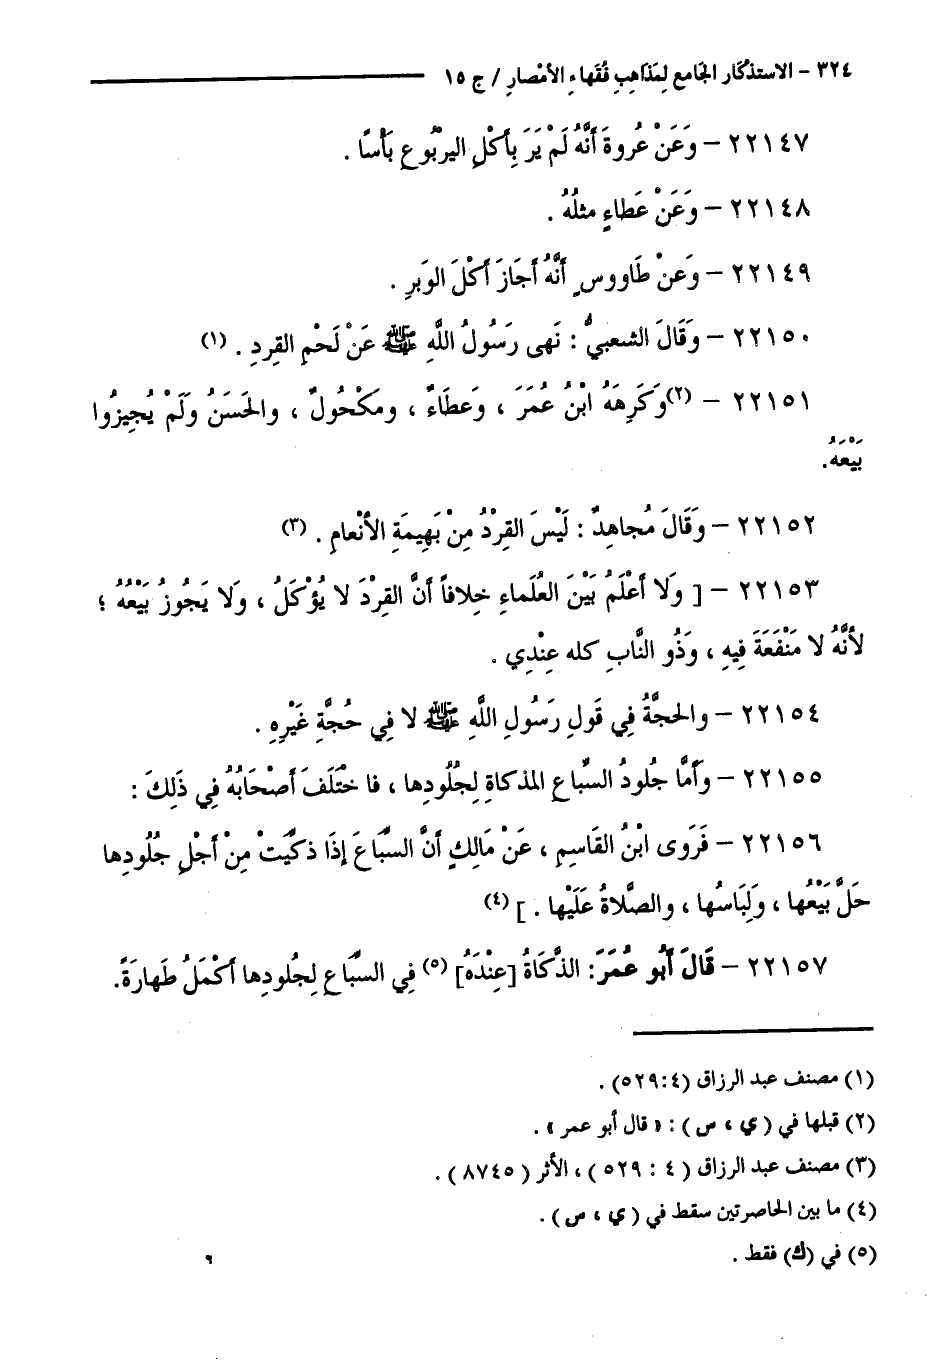 ٣٢٤ - الاستذكار الجامع لِمَذاهِبِ فُقَهاءِ الأمْصارِ / ج ١٥
٢٢١٤٧ - وَعَنْ عُروةَ أَنَّهُ لَمْ يَرَ بِأَكْلِ اليربُوعِ بَأْسًا .
٢٢١٤٨ - وَعَنْ عَطاءٍ مثلُهُ .
٢٢١٤٩ - وَعنْ طَاووسٍ أَنَّهُ أَجَازَ أَكْلَ الوَبرِ .
٢٢١٥٠ - وَقَالَ الشعبيُّ : نَهى رَسُولُ اللَّهِ ﷺ عَنْ لَحْمِ القِردِ . (١)
٢٢١٥١ - (٢)وَكَرِهَهُ ابْنُ عُمَرَ ، وَعطَاءٌ ، ومَكْحُولٌ ، والحَسَنُ وَلَمْ يُجِيزُوا
بَيْعَهُ.
٢٢١٥٢ - وَقَالَ مُجاهِدٌ : لَيْسَ القِرْدُ مِنْ بَهِيمَةِ الأنْعامِ . (٣)
٢٢١٥٣ - [ وَلا أَعْلَمُ بَيْنَ العُلَماءِ خِلافاً أَنَّ القِرْدَ لا يُؤْكَلُ ، وَلا يَجُوزُ بَيْعُهُ ؛
لأنَّهُ لا مَنْفَعَةَ فِيهِ ، وَذُو النَّابِ كله عِنْدِي .
٢٢١٥٤ - والحجَّةُ فِي قَولِ رَسُولِ اللَّهِ ﷺ لا فِي حُجَّةِ غَيْرِهِ .
٢٢١٥٥ - وَأَمَّا جُلودُ السبَّاعِ المذكاةِ لِجُلُودِها ، فا ختَلَفَ أَصْحَابُهُ فِي ذَلِكَ :
٢٢١٥٦ - فَرَوى ابْنُ القَاسِمِ ، عَنْ مَالِكٍ أَنَّ السبَّاعَ إِذَا ذكِّيَتْ مِنْ أَجْلِ جُلُودِها
حَلَّ بَيْعُها ، وَلِبَاسُها ، والصَّلاةُ عَلَيْها . ] (٤)
٢٢١٥٧ - قَالَ أَبُو عُمَرَ: الذَّكَاةُ [عِنْدَهُ] (٥) فِي السبَّاعِ لِجُلودِها أَكْمَلُ طَهارَةً.
(١) مصنف عبد الرزاق (٤:٥٢٩) .
(٢) قبلها في ( ي ، س ) : « قال أبو عمر » .
(٣) مصنف عبد الرزاق ( ٤ : ٥٢٩ ) ، الأثر ( ٨٧٤٥ ) .
(٤) ما بين الحاصرتين سقط في ( ي ، س ) .
(٥) في (ك) فقط .